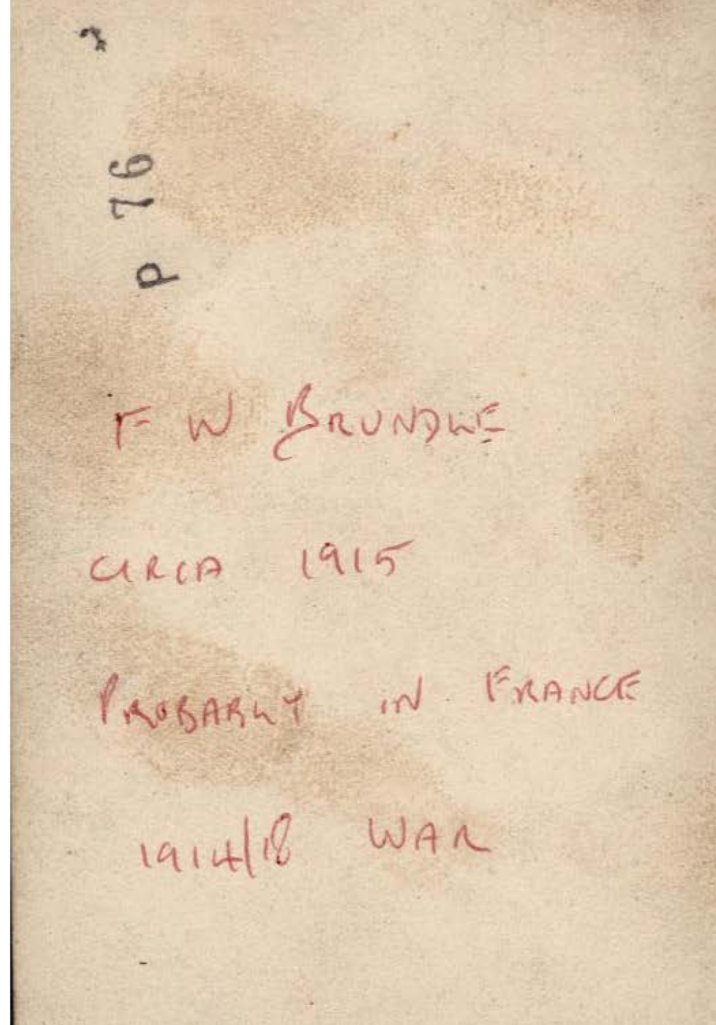 P 76
F W BRUNDLE
CIRCA 1915
PROBABLY IN FRANCE
1914/18 WAR